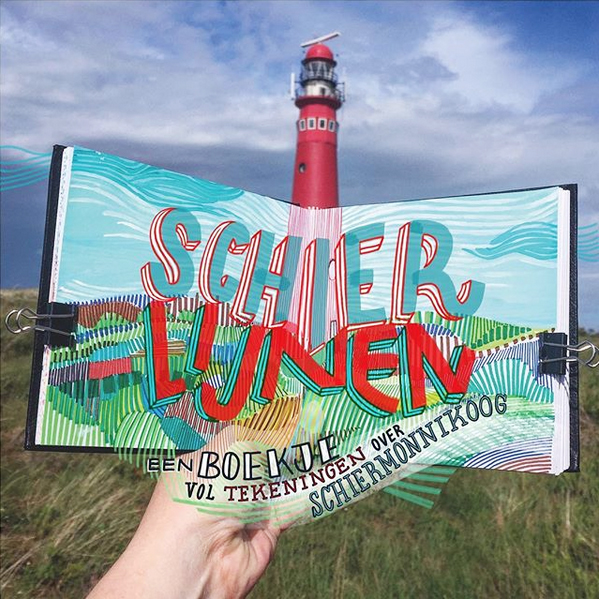 SCHIER
LIJNEN
EEN BOEKJE
VOL TEKENINGEN OVER
SCHIERMONNIKOOG